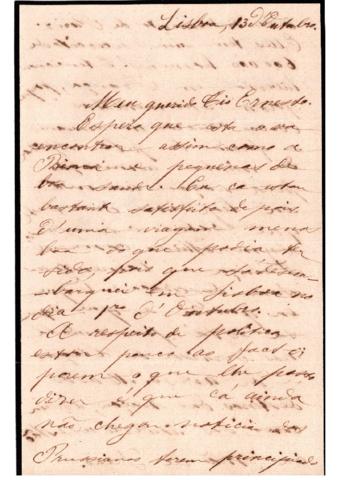 Lisboa, 13 d'Outubro.
Meu querido Tio Ernesto.
Espero que esta o va
encontrar assim como a
e pequenas de
boa saude. Eu ca estou
bastante satisfeito depois
d'uma viagem
que podia ter
sido, pois que só desem-
barquei em Lisboa no
dia 1º d'Outubro.
A respeito de politica
estou pouco ao facto
porem o que lhe posso
dizer é que cá ainda
não chegou noticia dos
Prussianos terem principiado